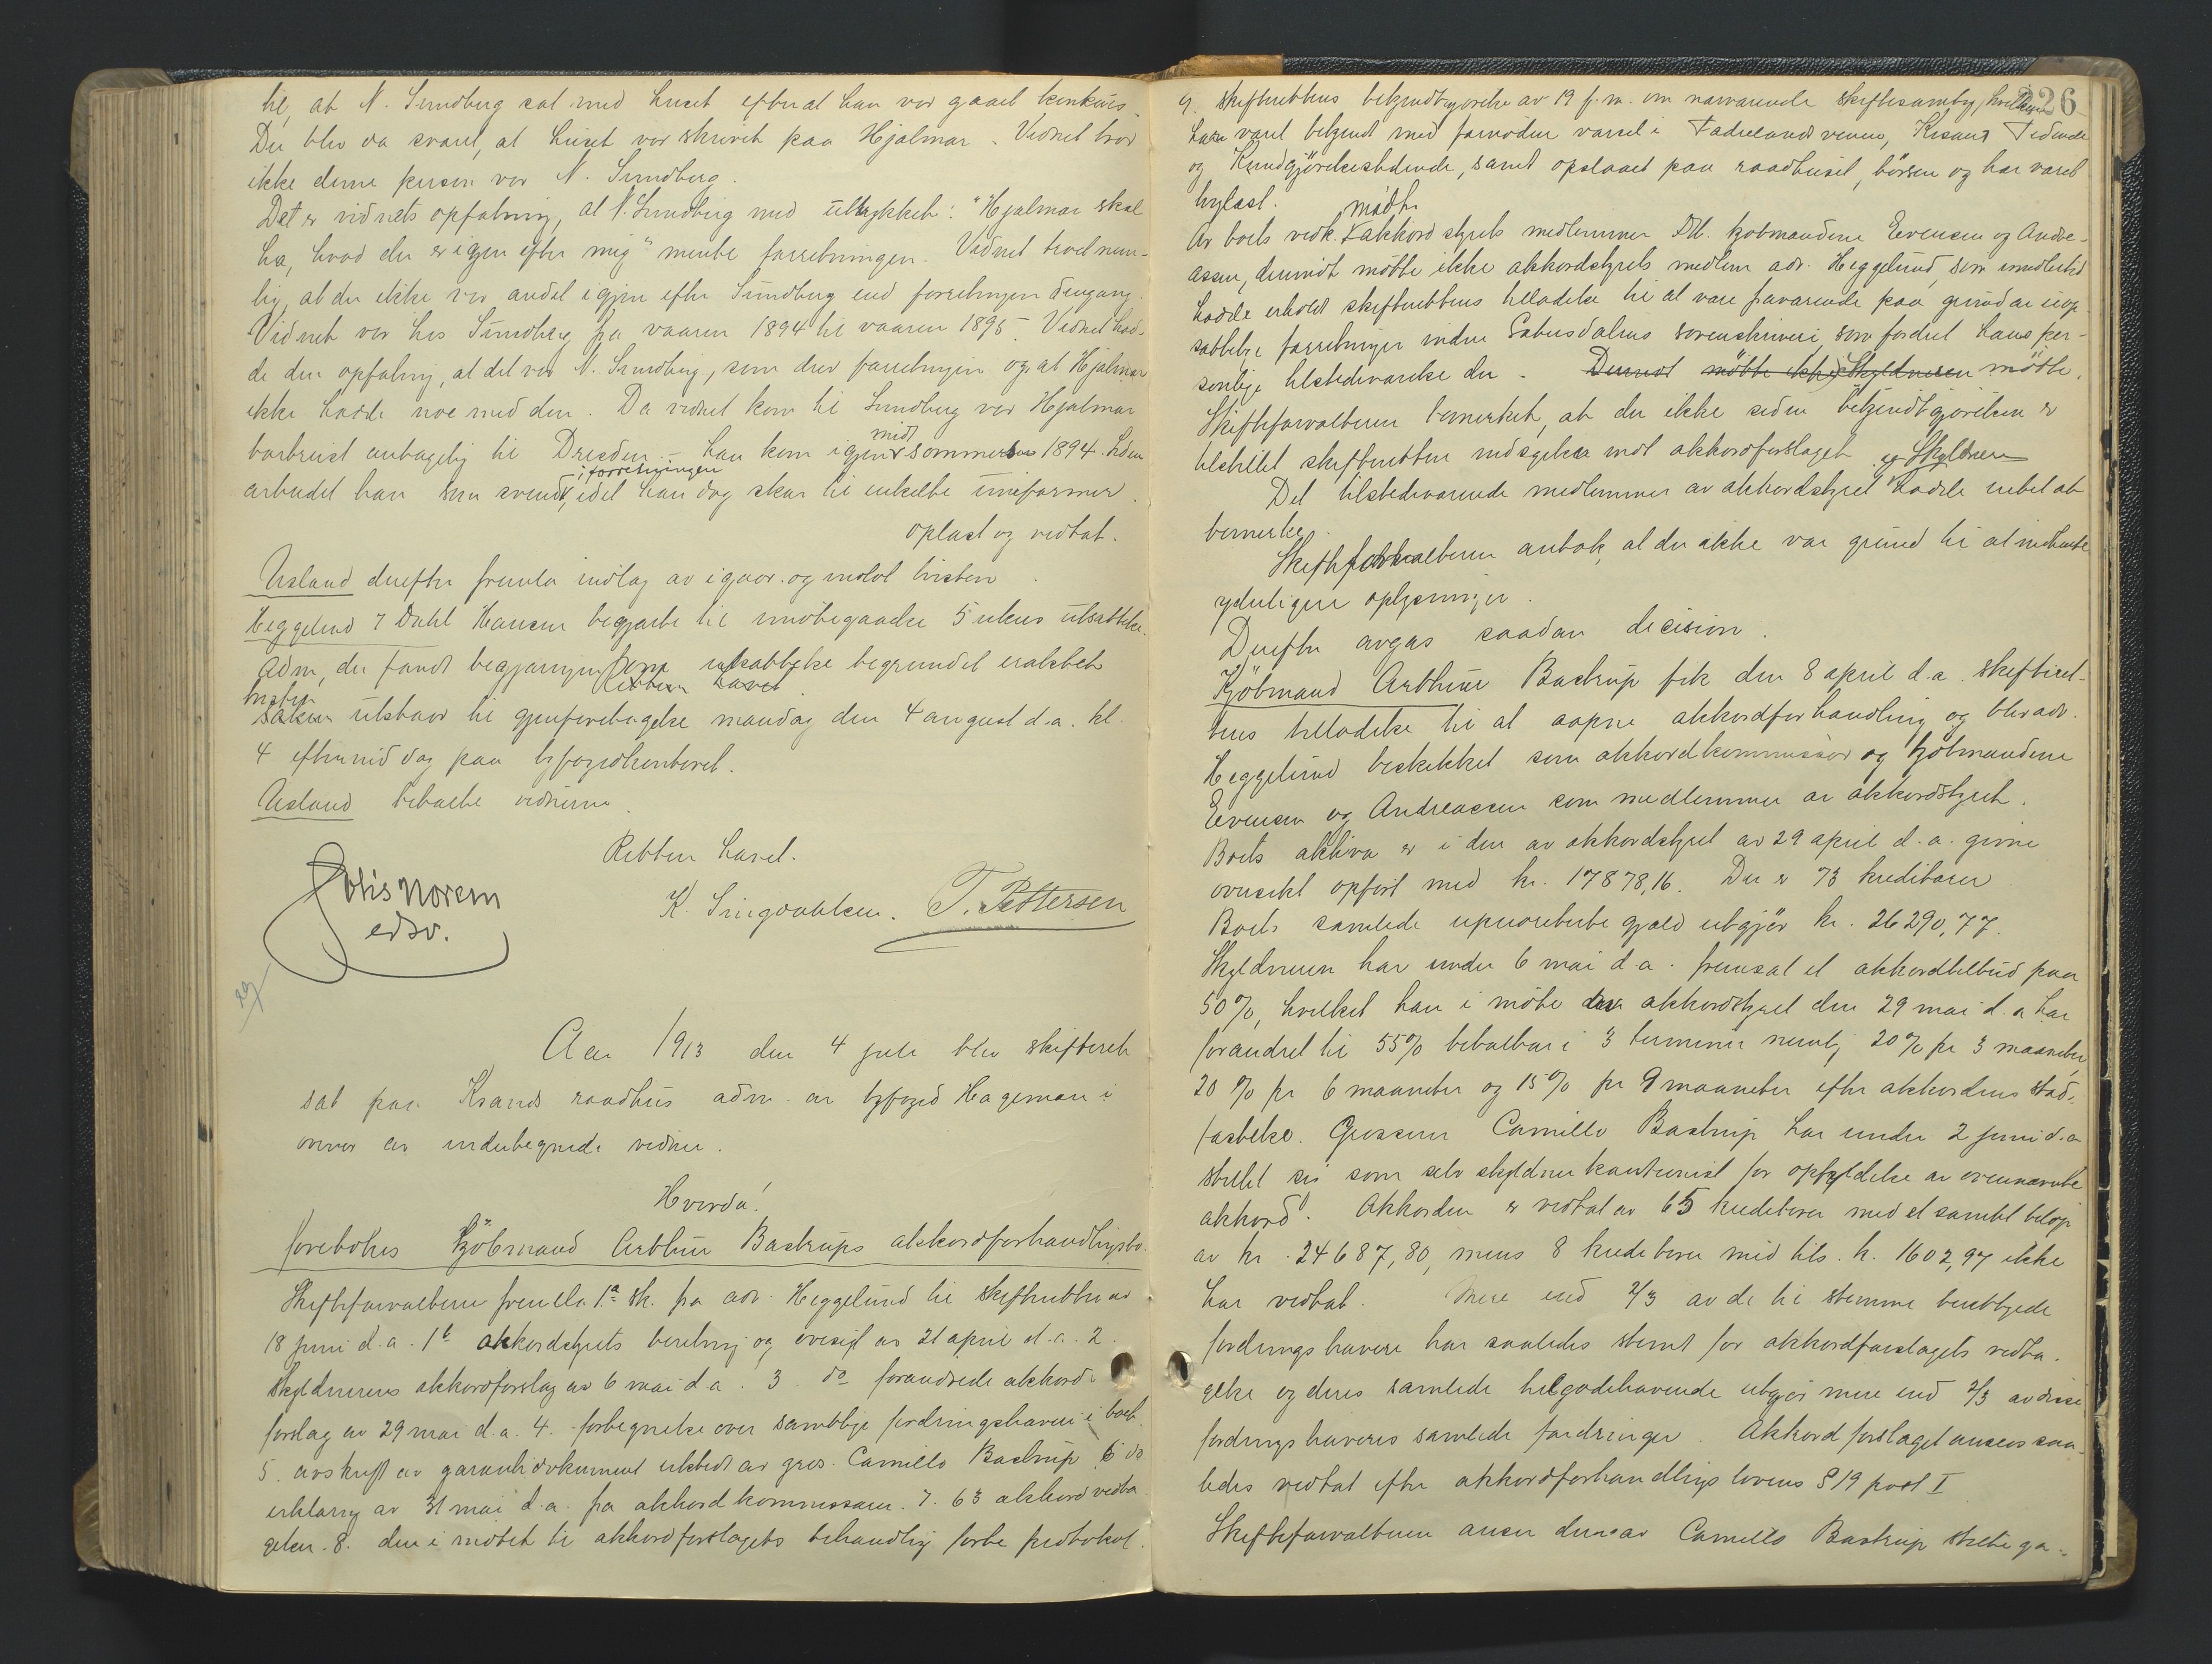 til, at N. Sundberg sat med huset efterat han var gaaet konkurs.
Der blev da svaret, at huset var skrevet paa Hjalmar. Vidnet tror
ikke denne person var N. Sundberg.
Det er vidnets opfatning, at N. Sundberg med uttrykket: "Hjalmar skal
ha, hvad der er igjen efter mig" mente forretningen. Vidnet trod nem-
lig, at der ikke var andet igjen efter Sundberg end forretningen dengang.
Vidnet var hos Sundberg fra vaaren 1894 til vaaren 1895. Vidnet had-
de den opfatning, at det var N. Sundberg, som drev forretningen og at Hjalmar
ikke hadde noe med den. Da vidnet kom til Sundberg var Hjalmar
bortreist antagelig til Dresden – han kom igjen midtsommers 1894. Siden
arbeidet han som svend i forretningen, idet han dog skar til enkelte uniformer.
Oplæst og vedtat.
Usland derefter fremla indlæg av igaar og indlot tvisten.
Heggelund f Dahl Hansen begjærte til imøtegaaelse 5 ukers utsættelse.
Adm, der fandt begjæringen om utsættelse begrundet eraktet
tvisten
saken utstaar til gjenforetagelse mandag den 4 august d.a. kl.
4 eftermiddag paa byfogedkontoret.
Usland betalte vidnerne.
Retten hævet.
Otis Norem
edsv.
K. Syvertsen. T. Pettersen
Aar 1913 den 4 juli blev skifteret
sat paa Krsands raadhus adm. av byfoged Hageman i
overvær av undertegnede vidner.
Hvorda!
foretokes Kjöbmand Arthur Bastrups akkordforhandlingsbo.
Skifteforvalteren fremla 1a sk. fra adv. Heggelund til skifteretten av
18 juni d.a. 1b akkordstyrets beretning og oversigt av 21 april d.a. 2.
skyldnerens akkordforslag av 6 mai d.a. 3 do forandrede akkord-
forslag av 29 mai d.a. 4. fortegnelse over samtlige fordringshavere i boet.
5. avskrift av garantidokument utstedt av gros. Camillo Bastrup 6 do
erklæring av 31 mai d.a. fra akkordkommissæren. 7. 63 akkordvedta-
gelser. 8. den i møtet til akkordforslagets behandling førte protokol.
226
9. skifterettens bekjendtgjørelse av 19 f.m. om nærværende skiftesamling, hvilken
har været bekjendt med fornøden varsel i Fædrelandsvennen, Krsands Tidende
og Kundgjörelsestidende, samt opslaaet paa raadhuset, börsen og har været
trylæst.
Av boets vedk. mödte akkordstyrets medlemmer DHr. kjöbmændene Evensen og Andre-
assen, derimot mötte ikke akkordstyrets medlem adv. Heggelund, som imidlertid
hadde erholdt skifterettens tilladelse til at være fraværende paa grund av uop-
sættelige forretninger inden Sætersdalens sorenskriveri, som fordret hans per-
sonlige tilstedeværelse der. Derimot mötte ikke Skyldneren mötte.
Skifteforvalteren bemerket, at der ikke siden bekjendtgjörelsen er
tilstillet skifteretten indsigelser mot akkordforslaget.
og Skyldneren
Det tilstedeværende medlemmer av akkordstyret hadde intet at
bemerke.
Skifteforvalteren antok, at der ikke var grund til at indhente
yderligere oplysninger.
Derefter avgas saadan decision.
Kjöbmand Arthur Bastrup fik den 8 april d.a. skifteret-
tens tilladelse til at aapne akkordforhandling og blev adv.
Heggelund beskikket som akkordkommissær og kjöbmændene
Evensen og Andreassen som medlemmer av akkordstyret.
Boets aktiva er i den av akkordstyret av 29 april d.a. givne
oversikt opfört med kr. 17878,16. Der er 73 kreditorer
Boets samlede uprioriterte gjæld utgjör kr. 26290,77.
Skyldneren har under 6 mai d.a. fremsat et akkordtilbud paa
50%, hvilket han i möte av akkordstyret den 29 mai d.a har
forandret til 55% betalbar i 3 terminer nemlig 20% pr 3 maaneder,
20% pr 6 maaneder og 15% pr 9 maaneder efter akkordens stad-
fæstelse. Grossern Camillo Bastrup har under 2 juni d.a
stillet sig som selvskyldnerkautionist for opfyldelse av ovennævnte
akkord. Akkorden er vedtat av 65 kreditorer med et samlet belöp
av kr. 24687,80, mens 8 kreditorer med tils. kr. 1602,97 ikke
har vedtat. Mere end 2/3 av de til stemme berettigede
fordringshavere har saaledes stemt for akkordforslagets vedta-
gelse og deres samlede tilgodehavende utgjör mere end 2/3 av disse
fordringshaveres samlede fordringer. Akkordforslaget ansees saa-
ledes vedtat efter akkordforhandlings lovens § 19 post I
Skifteforvalteren anser den av Camillo Bastrup stillede ga-